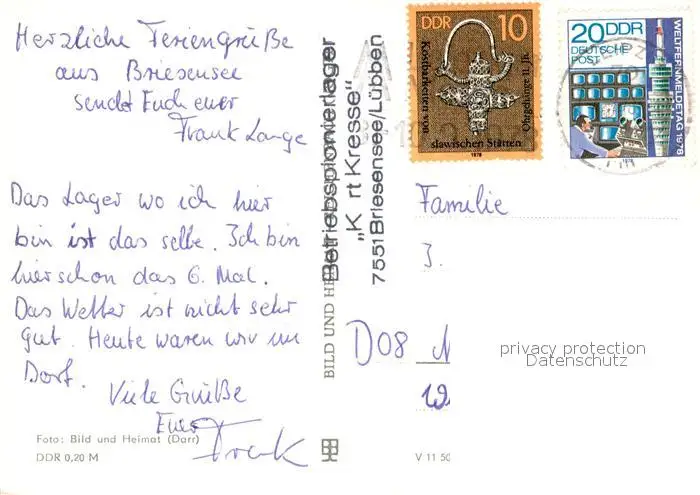 Herzliche Feriengrüße
aus Briesensee
sendet Euch euer
Frank Lange
Das Lager wo ich hier
bin ist das selbe. Ich bin
hier schon das 6. Mal.
Das Wetter ist nicht sehr
gut. Heute waren wir im
Dorf.
Viele Grüße
Euer
Frank
Foto: Bild und Heimat (Darr)
DDR 0,20 M
BILD UND HE
Betriebspionierlager
„K rt Kresse"
7551 Briesensee/Lübben
DDR 10
Kostbarkeiten von
slawischen Stätten
Ohrgehänge 11. Jh.
1978
20 DDR
DEUTSCHE
POST
WELTFERNMELDETAG 1978
Familie
J.
D08
V 11 50
privacy protection
Datenschutz